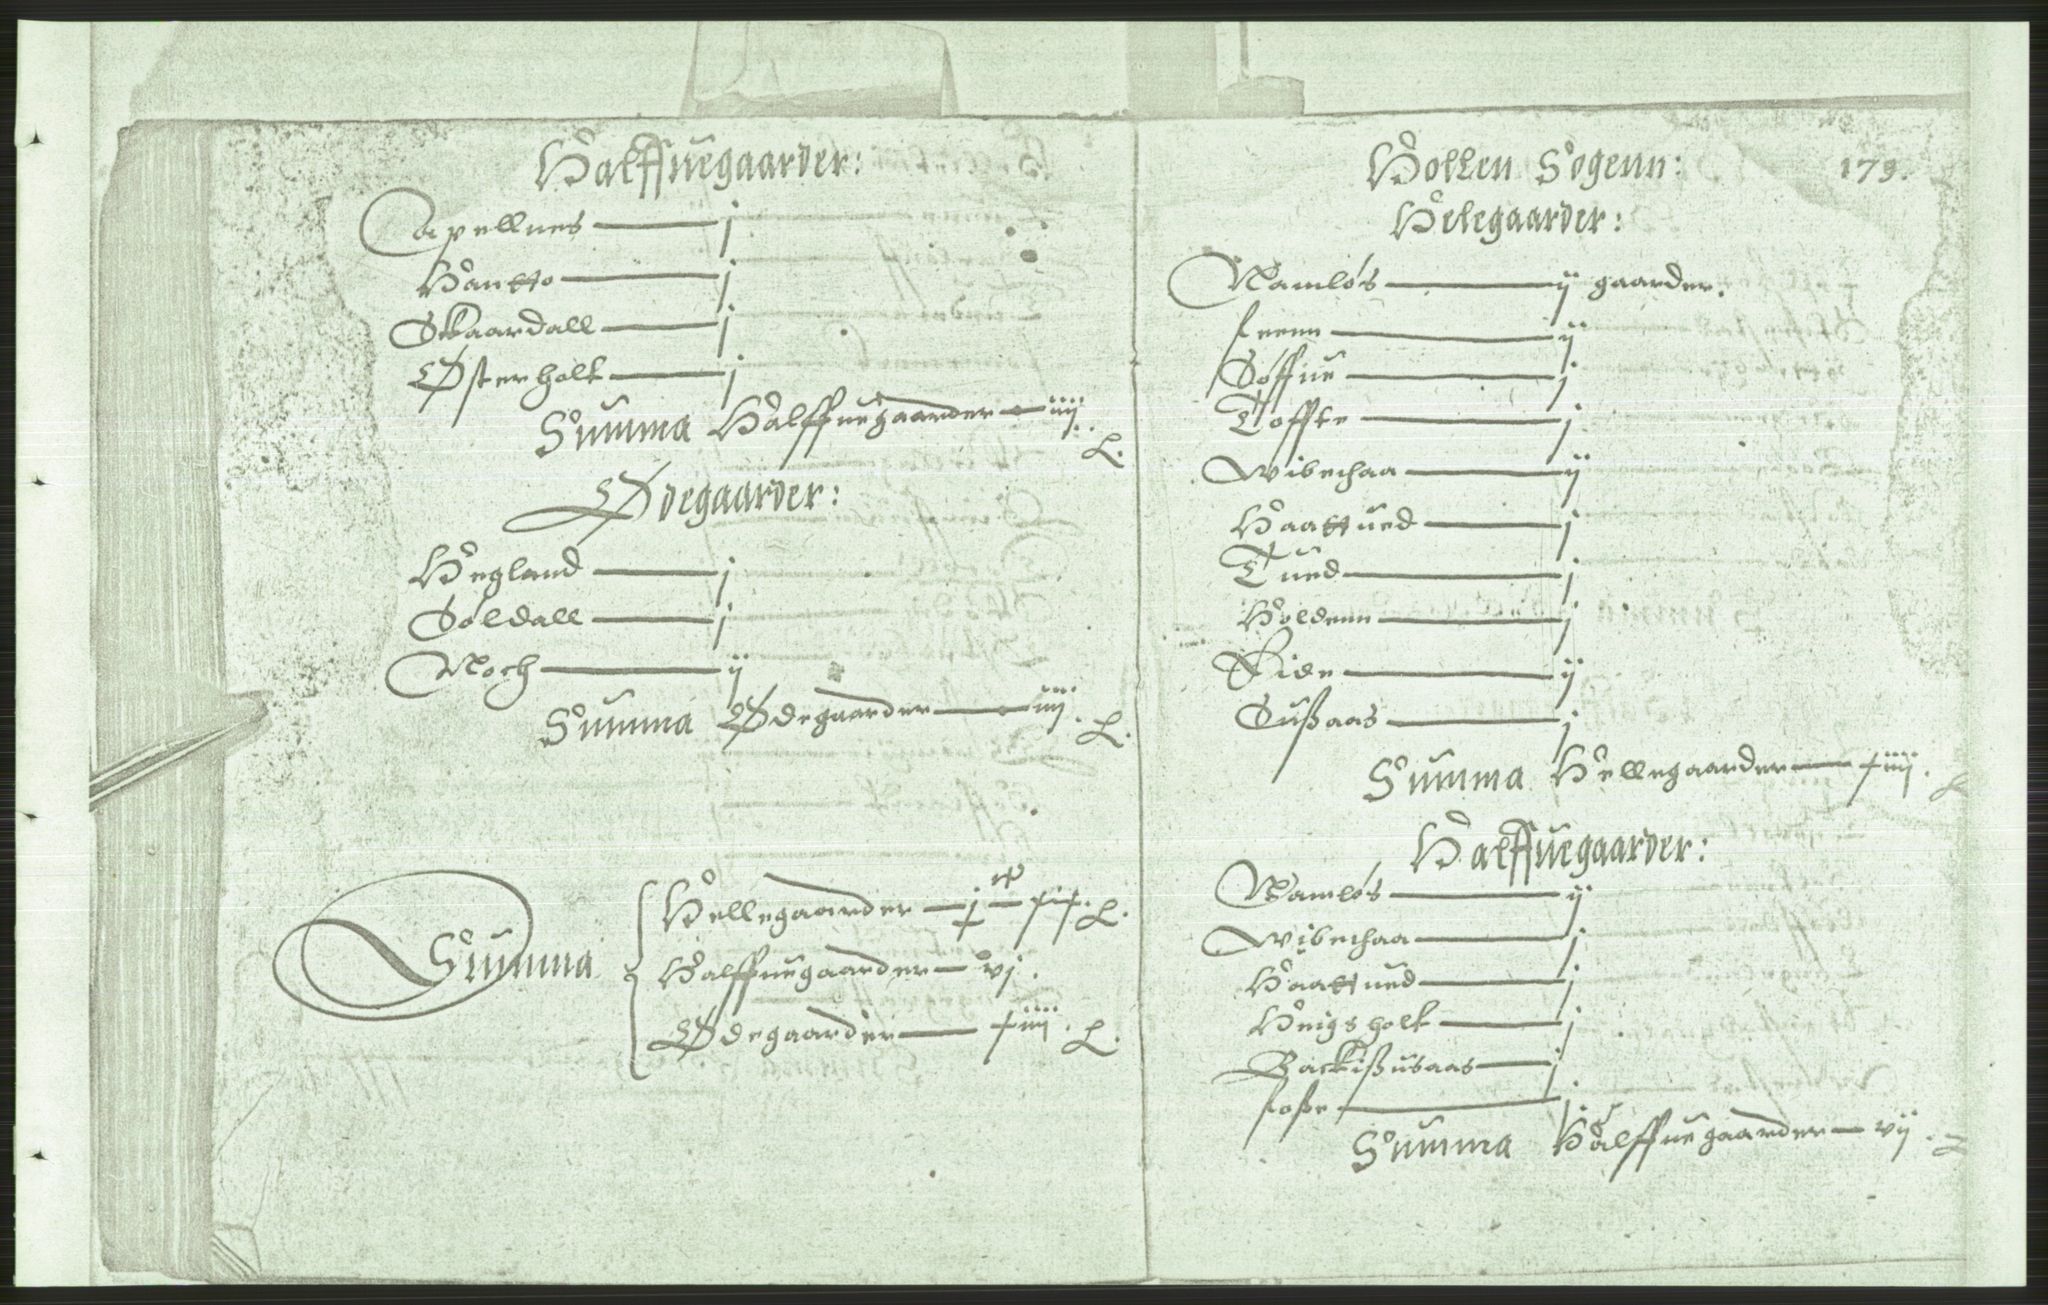 Halffuegaarder:
Apellnes — j
Hantto — j
Skaardall — j
Østerholt — j
Summa Halffuegaarder — iiij.
Ødegaarder:
Hegland — j
Søldall — j
Moch — ij
Summa Ødegaarder — iiij.
Summa
Hellegaarder — j
Halffuegaarder — vj.
Ødegaarder — xiiij.
Hollen Sogenn: 179.
Helegaarder:
Namløs — ij gaarder.
— ij
Søffue — j
Toffte — j
Wibechaa — ij
Haattued — j
Tued — j
Holdenn — j
Eide — ij
Sußaas — j
Summa Hellegaarder — xiiij.
Halffuegaarder:
Namløs — ij
Wibechaa — j
Haattued — j
Heigsholt — j
Backißusaas — j
foße — j
Summa Halffuegaarder — vij.